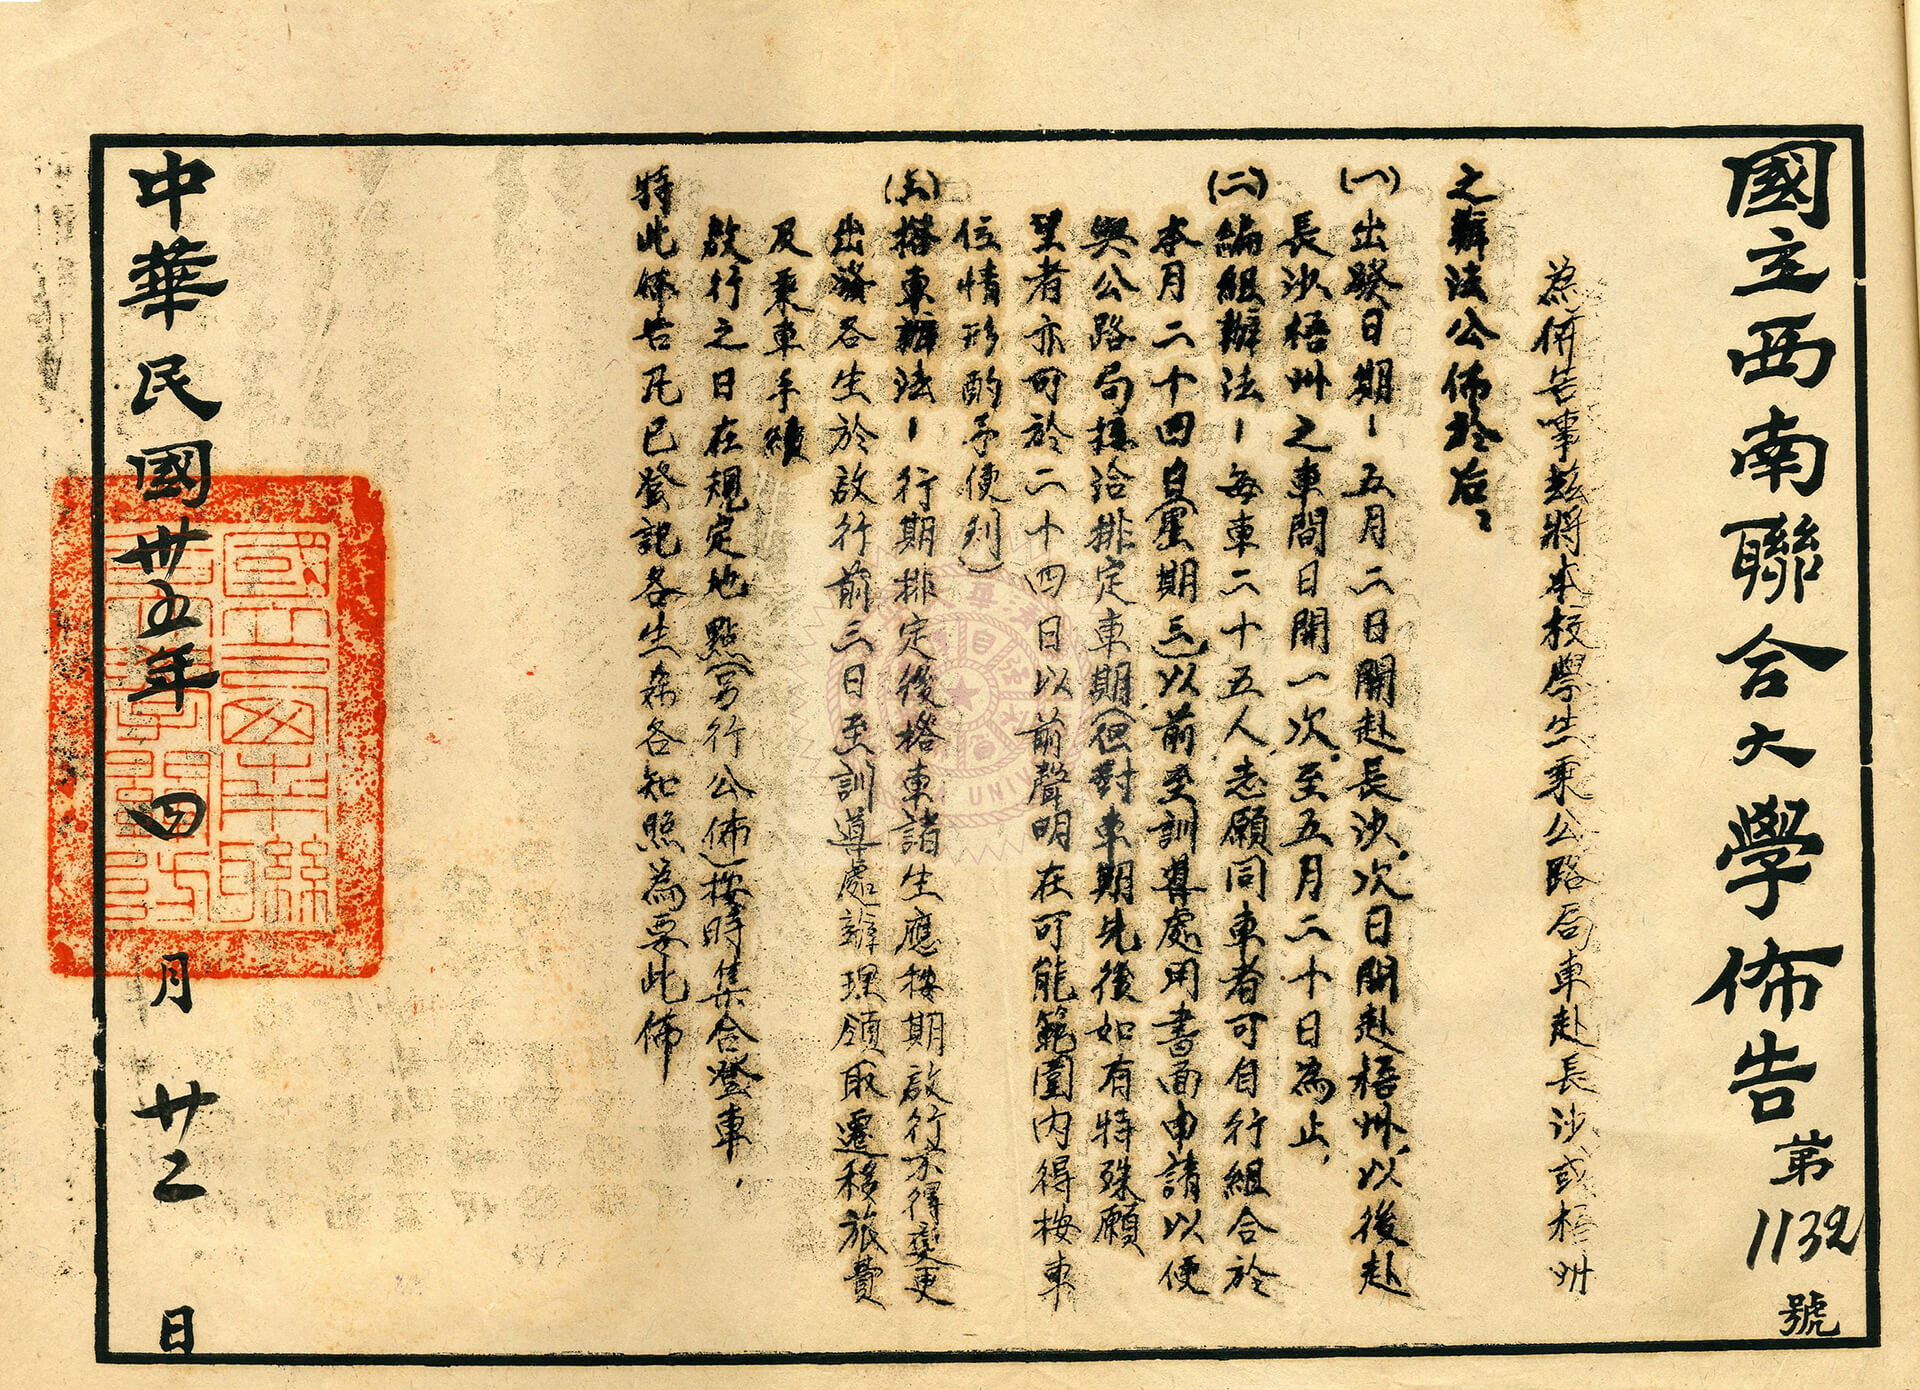 國立西南聯合大學佈告 第1132號
為佈告事兹將本校學生乘公路局車赴長沙或梧州
之辦法公佈於后：
(一)出發日期－五月二日開赴長沙，次日開赴梧州，以後赴
長沙梧州之車間日開一次，至五月二十日為止，
(二)編組辦法－每車二十五人，志願同車者可自行組合於
本月二十四日(星期三)以前至訓導處用書面申請以便
與公路局接洽排定車期(但對車期先後如有特殊願
望者亦可於二十四日以前聲明在可能範圍內得按車
位情形酌予便利)
(三)搭車辦法－行期排定後搭車諸生應按期啟行不得變更
出發各生於啟行前三日至訓導處辦理領取遷移旅費
及乘車手續
啟行之日在規定地點(另行公佈)按時集合登車，
特此佈告凡已登記各生希各知照為要此佈
中華民國卅五年四月廿二日
國立西南聯